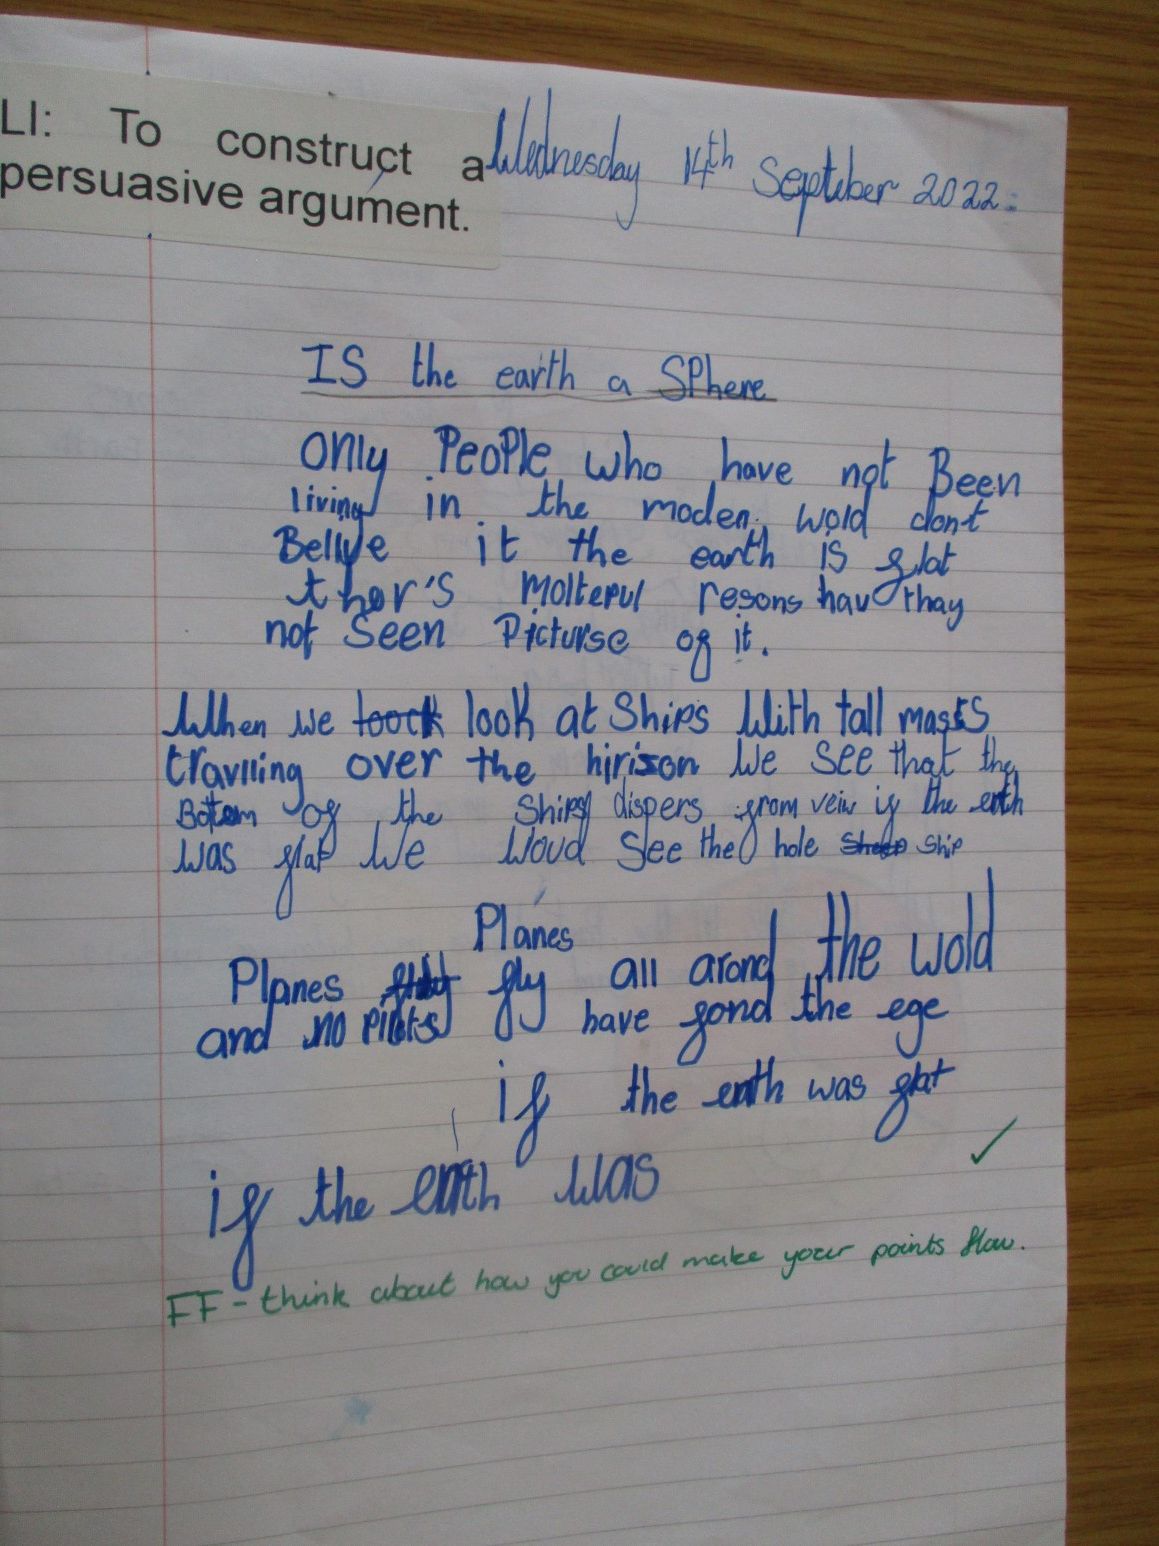 LI: To construct a
persuasive argument.
Wednesday 14th September 2022.
IS the earth a SPhere
Only PeoPle who have not Been
living in the moden wold dont
Bellve it the earth is flat
ther's moltepul resons hav thay
not Seen Picturse of it.
When we toock look at Ships With tall masts
travlling over the hirison We See that the
Bottem of the Ships dispers from veiw if the earth
was flat We Woud See the hole ship
Planes
Planes fly all arond the wold
and no pilots have fond the ege
if the earth was flat
if the earth was
FF - think about how you could make your points flow.